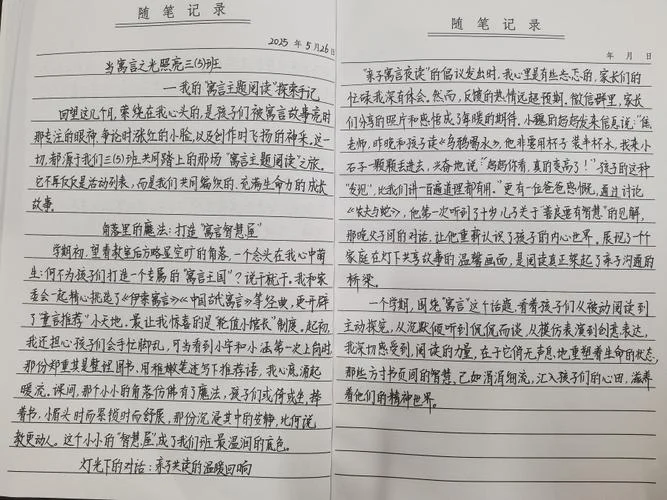 随笔记录
2025 年 5 月 26 日
当寓言之光照亮三(5)班
——我的"寓言主题阅读"探索手记
回望这几个月,萦绕在我心头的,是孩子们被寓言故事点亮时
那专注的眼神、争论时涨红的小脸,以及创作时飞扬的神采。这一
切,都源于我们三(5)班共同踏上的那场"寓言主题阅读"之旅。
它不仅仅是活动列表,而是我们共同编织的、充满生命力的成长
故事。
角落里的魔法:打造"寓言智慧屋"
学期初,望着教室后方略显空旷的角落,一个念头在我心中萌
生:何不为孩子们打造一个专属的"寓言王国"?说干就干。我和家
委会一起精心挑选了《伊索寓言》《中国古代寓言》等经典,更开辟
了"童言推荐"小天地。最让我惊喜的是"轮值小馆长"制度。起初,
我还担心孩子们会手忙脚乱,可当看到小宇和小涵第一次上岗时,
那份郑重其事整理图书、用稚嫩笔迹写下推荐语,我心底涌起
暖流。课间,那个小小的角落仿佛有了魔法,孩子们或倚或坐,捧
着书,小眉头时而紧锁时而舒展,那份沉浸其中的安静,比何说
教更动人。这个小小的"智慧屋",成了我们班最温润的底色。
灯光下的对话:亲子共读的温暖回响
随笔记录
年 月 日
"亲子寓言夜读"的倡议发出时,我心里是有些忐忑的,家长们的
忙碌我深有体会。然而,反馈的热情远超预期。微信群里,家长
们分享的照片和感悟成了每晚的期待。小魏的妈妈发来信息说:"焦
老师,昨晚和孩子读《乌鸦喝水》,他非要用杯子装半杯水,我来小
石子一颗颗丢进去,兴奋地说:'妈妈你看,真的变高了!'孩子的这种
'发现',比我们讲一百遍道理都有用。"更有一位爸爸感慨,通过讨论
《农夫与蛇》,他第一次听到了十岁儿子关于"善良要有智慧"的见解,
那晚父子间的对话,让他重新认识了孩子的内心世界。展现了一个个
家庭在灯下共享故事的温馨画面,是阅读真正架起了亲子沟通的
桥梁。
一个学期,围绕"寓言"这个话题,看着孩子们从被动阅读到
主动探究,从沉默倾听到侃侃而谈,从模仿表演到创意表达,
我深切感受到,阅读的力量,在于它悄无声息地重塑着生命的状态,
那些方寸书页间的智慧,已如涓涓细流,汇入孩子们的心田,滋养
着他们的精神世界。